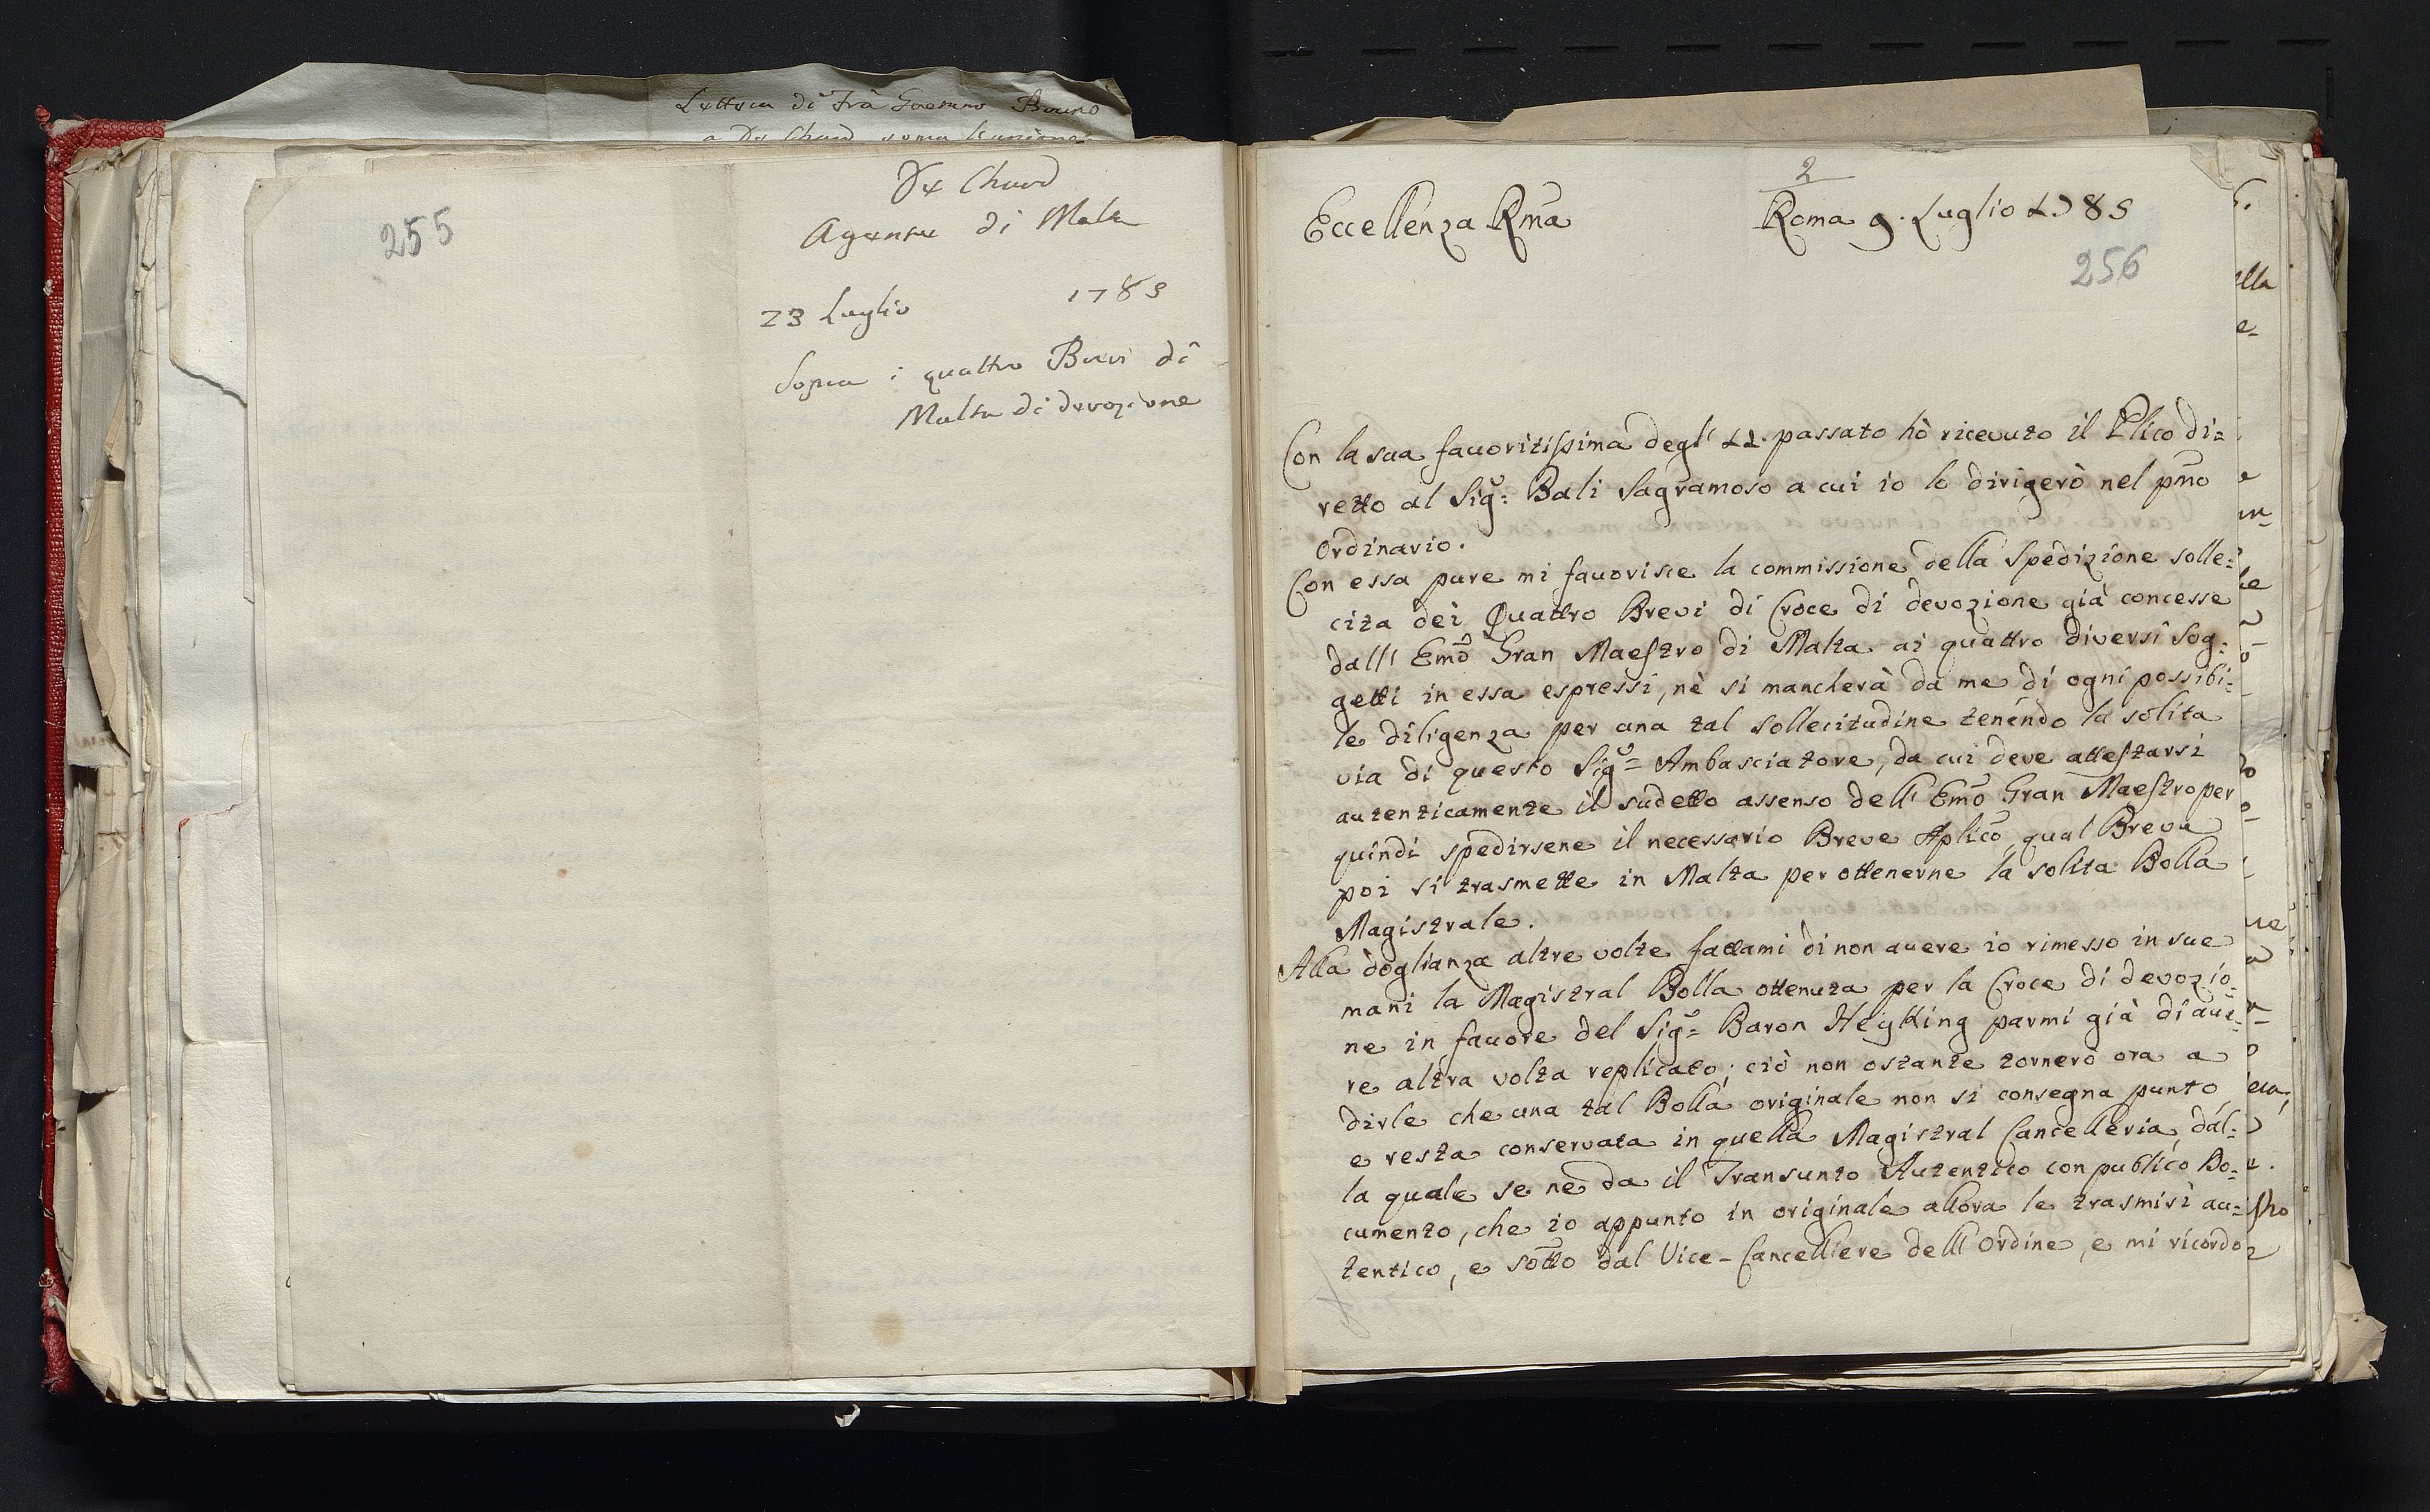 Lettera di Frà Gaetano Bruno
255
De Chard
Agente di Malta
23 Luglio 1783
Sopra i quattro Brevi di
Malta di devozione
2
Eccellenza Rm̃a
Roma 9. Luglio 1783
256
Con la sua favoritissima degl' 11. passato hò ricevuto il Plico di=
retto al Sigr: Bali Sagramoso a cui io lo dirigerò nel pm̃o
Ordinario.
Con essa pure mi favorisce la commissione della Spedizione solle=
cita dei Quattro Brevi di Croce di devozione già concesse
dall' Em̃o Gran Maestro di Malta ai quattro diversi Sog=
getti in essa espressi, nè si mancherà da me di ogni possibi=
le diligenza per una tal sollecitudine tenendo la solita
via di questo Sigr= Ambasciatore, da cui deve attestarsi
autenticamente il sudetto assenso dell' Em̃o Gran Maestro per
quindi spedirsene il necessario Breve Aplico, qual Breve
poi si trasmette in Malta per ottenerne la solita Bolla
Magistrale.
Alla doglianza altre volte fattami di non avere io rimesso in sue
mani la Magistral Bolla ottenuta per la Croce di devozio=
ne in favore del Sigr= Baron Heyking parmi già di ave=
re altra volta replicato; ciò non ostante tornerò ora a
dirle che una tal Bolla originale non si consegna punto,
e resta conservata in quella Magistral Cancelleria, dal=
la quale se ne da il Transunto Autentico con publico Do=
cumento, che io appunto in originale allora le trasmisi au=
tentico, e sotto dal Vice-Cancelliere dell' Ordine, e mi ricordo